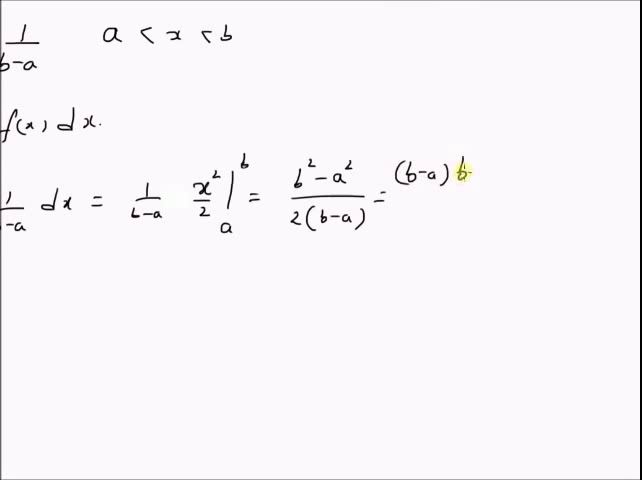 1/(b-a) a < x < b
f(x) dx.
1/(b-a) dx = 1/(b-a) x²/2 |ₐᵇ = (b² - a²)/(2(b-a)) = (b-a) b-